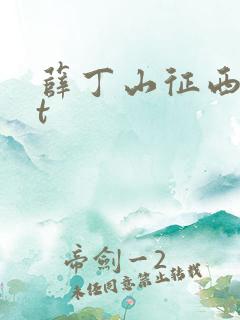 薛丁山征西
t
帝劍一2
未经同意禁止转载